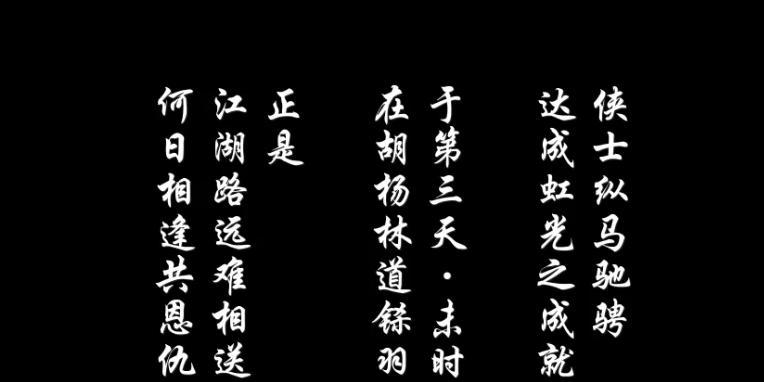 侠士纵马驰骋
达成虹光之成就
于第三天·未时
在胡杨林道铩羽
正是
江湖路远难相送
何日相逢共恩仇